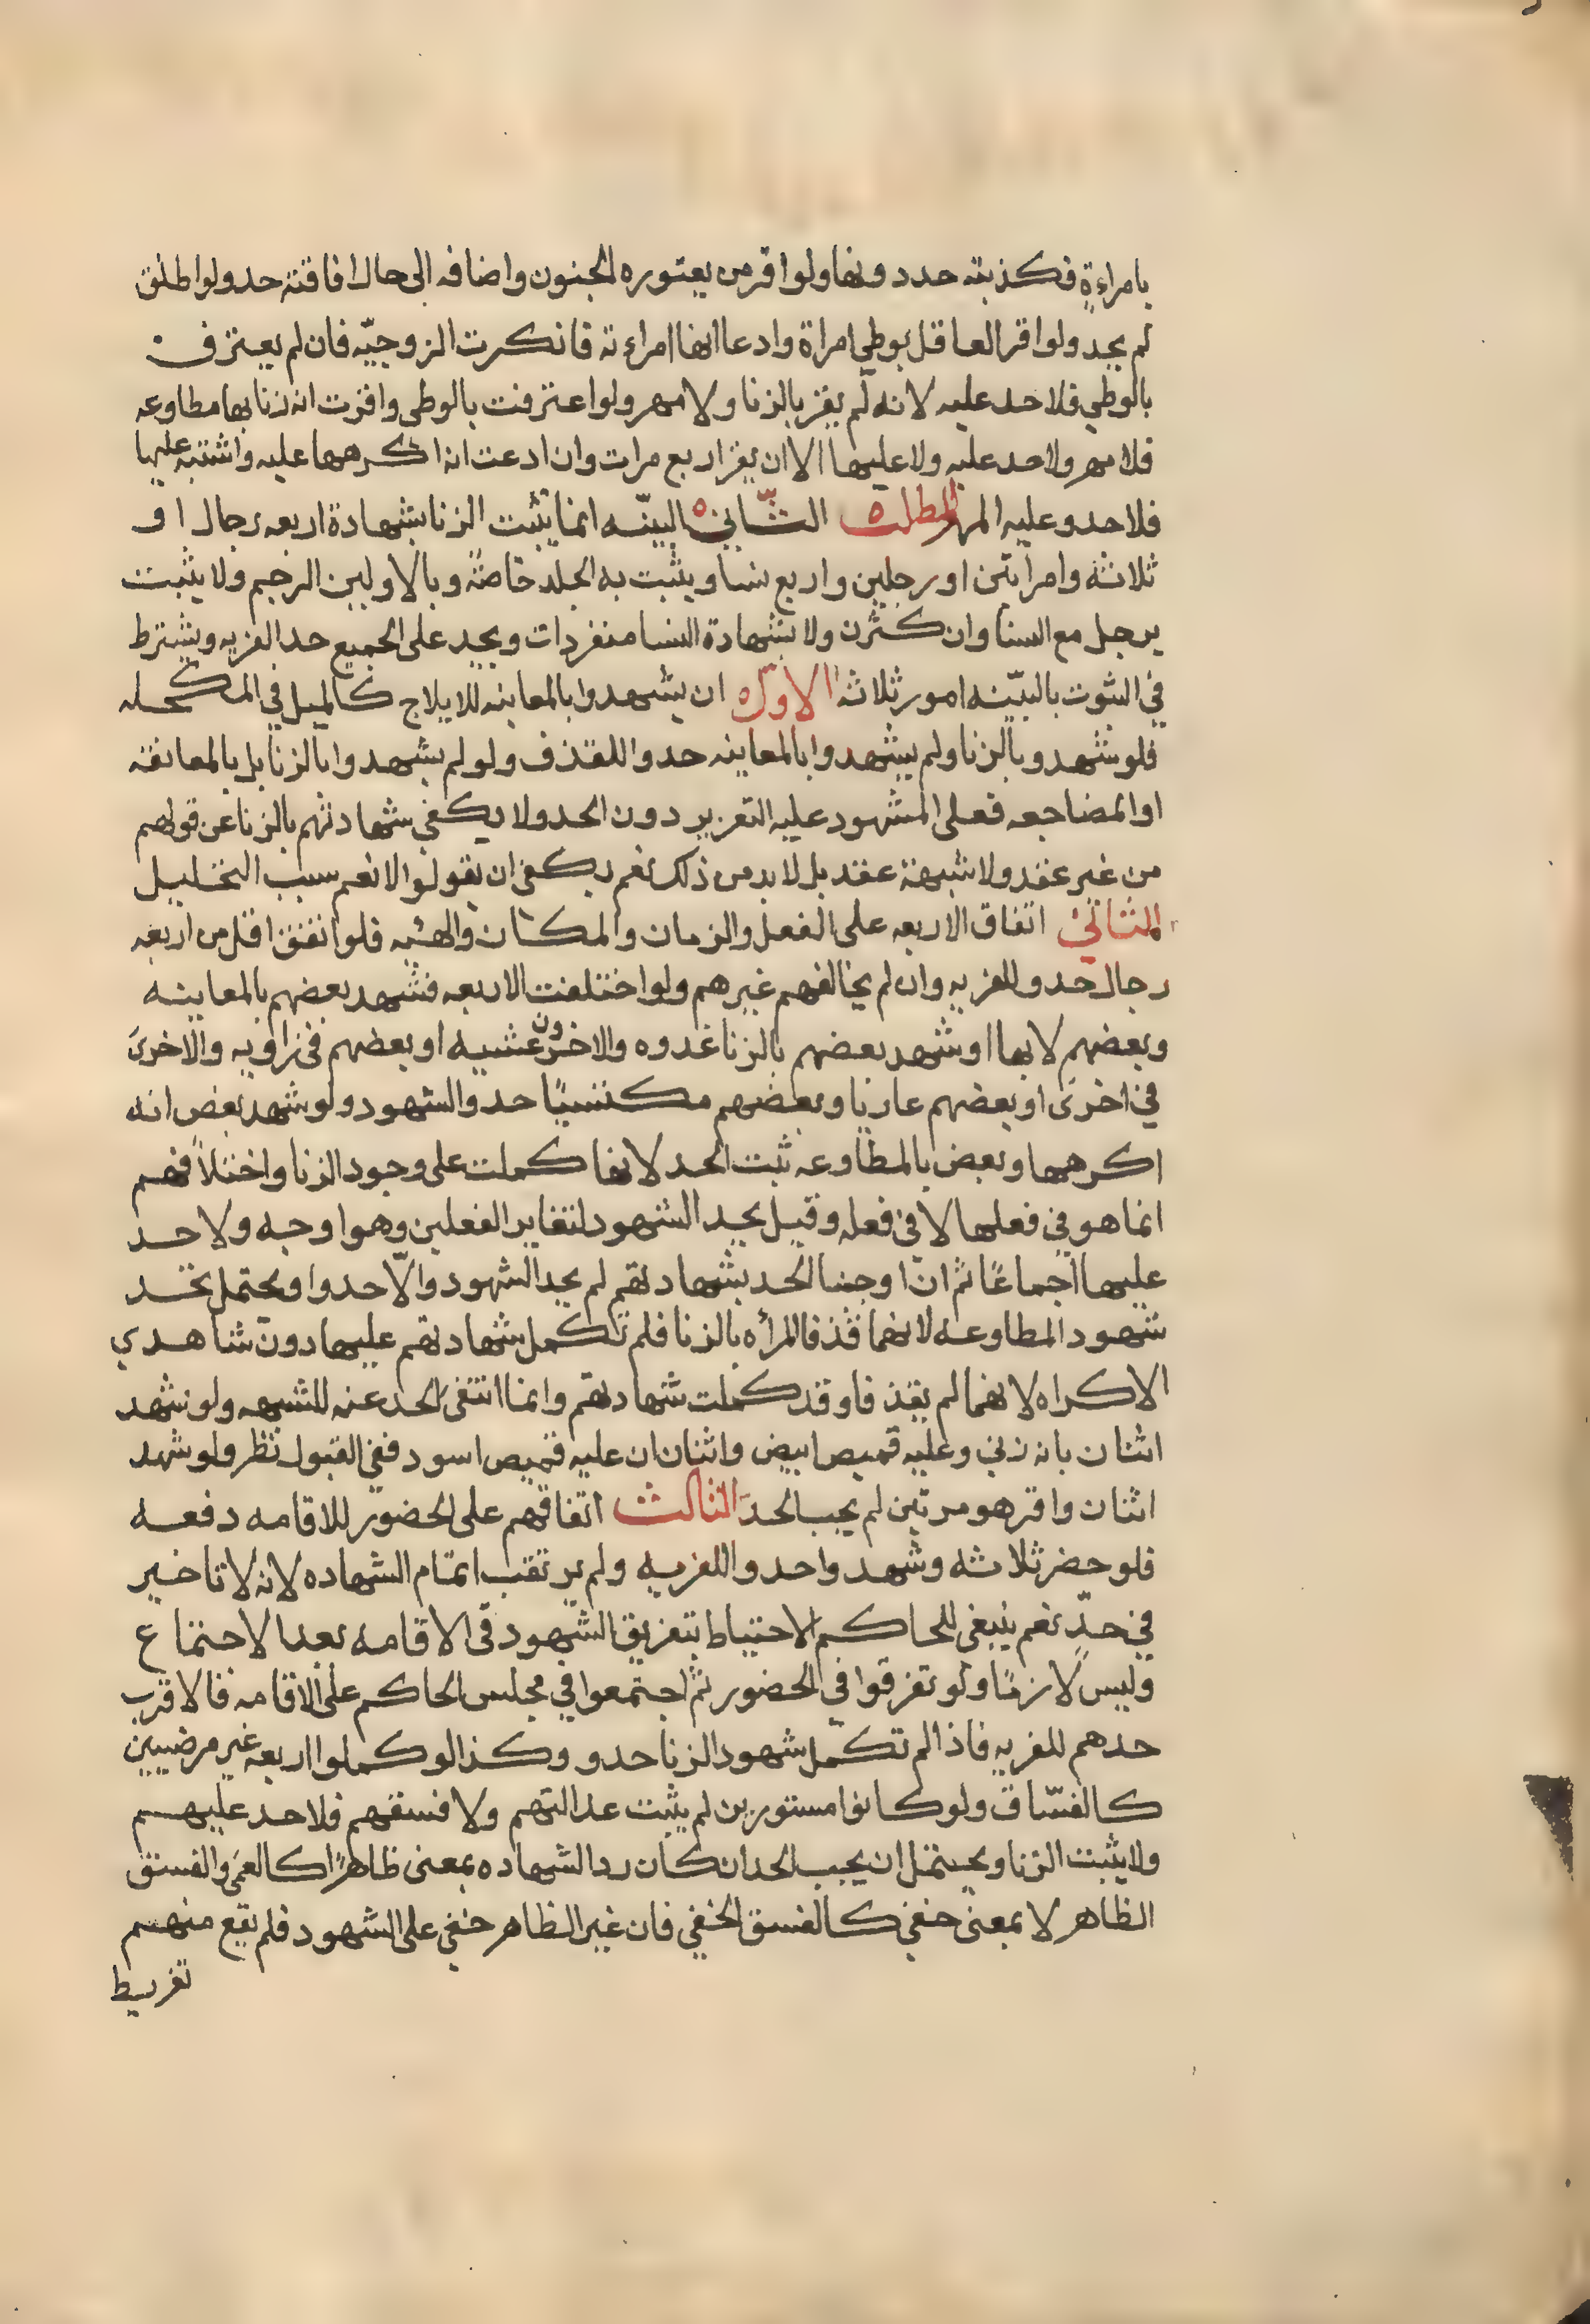 بامراءةٍ فكذبته حدد ونها ولو اقر من يعتوره الجنون واضافه الى حال افاقته حد ولو اطلق
لم يحد ولو اقر العاقل بوطي امراة وادعا انها امراءته فانكرت الزوجيّه فان لم يعترف
بالوطي فلا حد عليه لانه لم يقر بالزنا ولا مهر ولو اعترفت بالوطي واقرت انه زنا بها مطاوعه
فلا مهر ولا حد عليه ولا عليها الا ان يقر اربع مرات وان ادعت انه اكرهها عليه واشتبه عليها
فلا حد وعليه المهر المطلب الثاني البينّه انما يثبت الزنا بشهادة اربعه رجال او
ثلاثة وامراتين او رجلين واربع نسا ويثبت به الجلد خاصّةً وبالاولين الرجم ولا يثبت
برجل مع النسا وان كثرن ولا بشهادة النسا منفردات ويحد على الجميع حد الفريه ويشترط
في الثبوت بالبيّنه امور ثلاثه الاول ان يشهدوا بالمعاينه للايلاج كالميل في المكحله
فلو شهدو بالزنا ولم يشهدوا بالمعاينه حدوا للقذف ولو لم يشهدوا بالزنا بل بالمعانقه
او المضاجعه فعلى المشهود عليه التعزير دون الحد ولا يكفي شهادتهم بالزنا عن قولهم
من غير عقد ولا شبهة عقد بل لا بد من ذلك نعم يكفي ان يقولوا لا نعم سبب التحليل
الثاني اتفاق الاربعه على الفعل والزمان والمكان والهئيه فلو اتفق اقل من اربعه
رجال حدو للفريه وان لم يخالفهم غيرهم ولو اختلفت الاربعه فشهد بعضهم بالمعاينه
وبعضهم لا بها او شهد بعضهم بالزنا غدوه والاخرون عشيه او بعضهم في زاويه والاخرى
في اخرى او بعضهم عاريا وبعضهم مكتسيًا حدو الشهود ولو شهد بعض انه
اكرهها وبعض بالمطاوعه ثبت الحد لانها كملت على وجود الزنا واختلافهم
انما هو في فعلها لا في فعله وقيل يحد الشهود لتغاير الفعلين وهو اوجه ولا حد
عليها اجماعًا ثم ان اوجبنا الحد بشهادتهم لم يحد الشهود والّا حدوا ويحتمل تحد
شهود المطاوعه لانهما قذفا المرأه بالزنا فلم تكمل شهادتهم عليها دون شاهدي
الاكراه لانهما لم يقذفا وقد كملت شهادتهم وانما انتفى الحد عنه للشبهه ولو شهد
اثنان بانه زنى وعليه قميص ابيض واثنان ان عليه قميص اسود ففي القبول نظر ولو شهد
اثنان واقر هو مرتين لم يجب الحد الثالث اتفاقهم على الحضور للاقامه دفعه
فلو حضر ثلاثه وشهد واحدوا للفريه ولم يرتقب اتمام الشهاده لانه لا تاخير
في حدّ نعم ينبغى للحاكم الاحتياط بتفريق الشهود في الاقامه بعد الاجتماع
وليس لازمًا ولو تفرقوا في الحضور ثم اجتمعوا في مجلس الحاكم على الاقامه فالاقرب
حدهم للفريه فاذا لم تكمل شهود الزنا حدو وكذا لو كملوا اربعه غير مرضيين
كالفسّاق ولو كانوا مستورين لم يثبت عدالتهم ولا فسقهم فلا حد عليهم
ولا يثبت الزنا ويحتمل ان يجب الحد ان كان رد الشهاده بمعنى ظاهرًا كالعمى والفسق
الظاهر لا بمعنى خفي كالفسق الخفي فان غير الظاهر خفي على الشهود فلم يقع منهم
تفريط